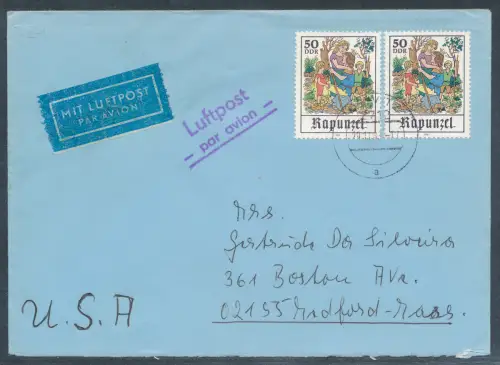 MIT LUFTPOST
PAR AVION
Luftpost
par avion
50
DDR
Rapunzel
50
DDR
Rapunzel
a
Mrs.
Gertrude Da Silveira
361 Boston Ava.
02155 Medford-Mass.
U.S.A